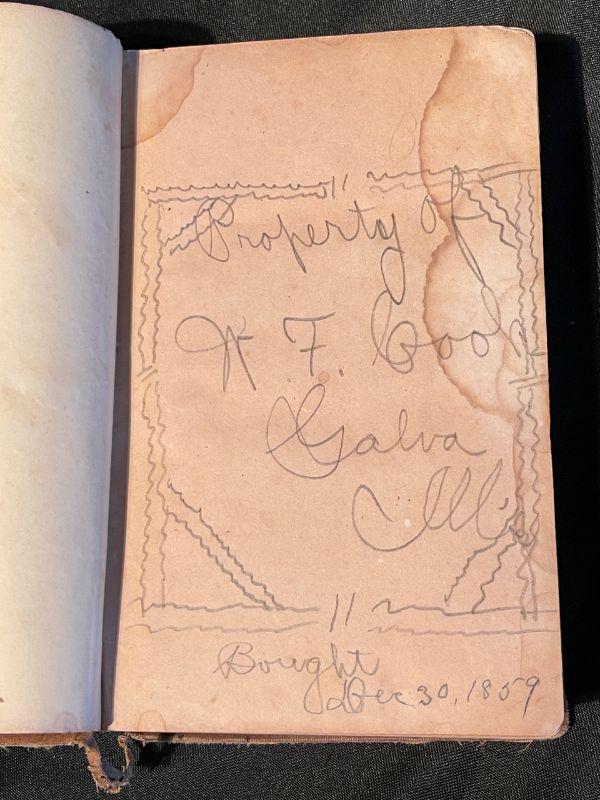 Property of
W. F. Cook
Galva
Ills
Bought
Dec 30, 1859